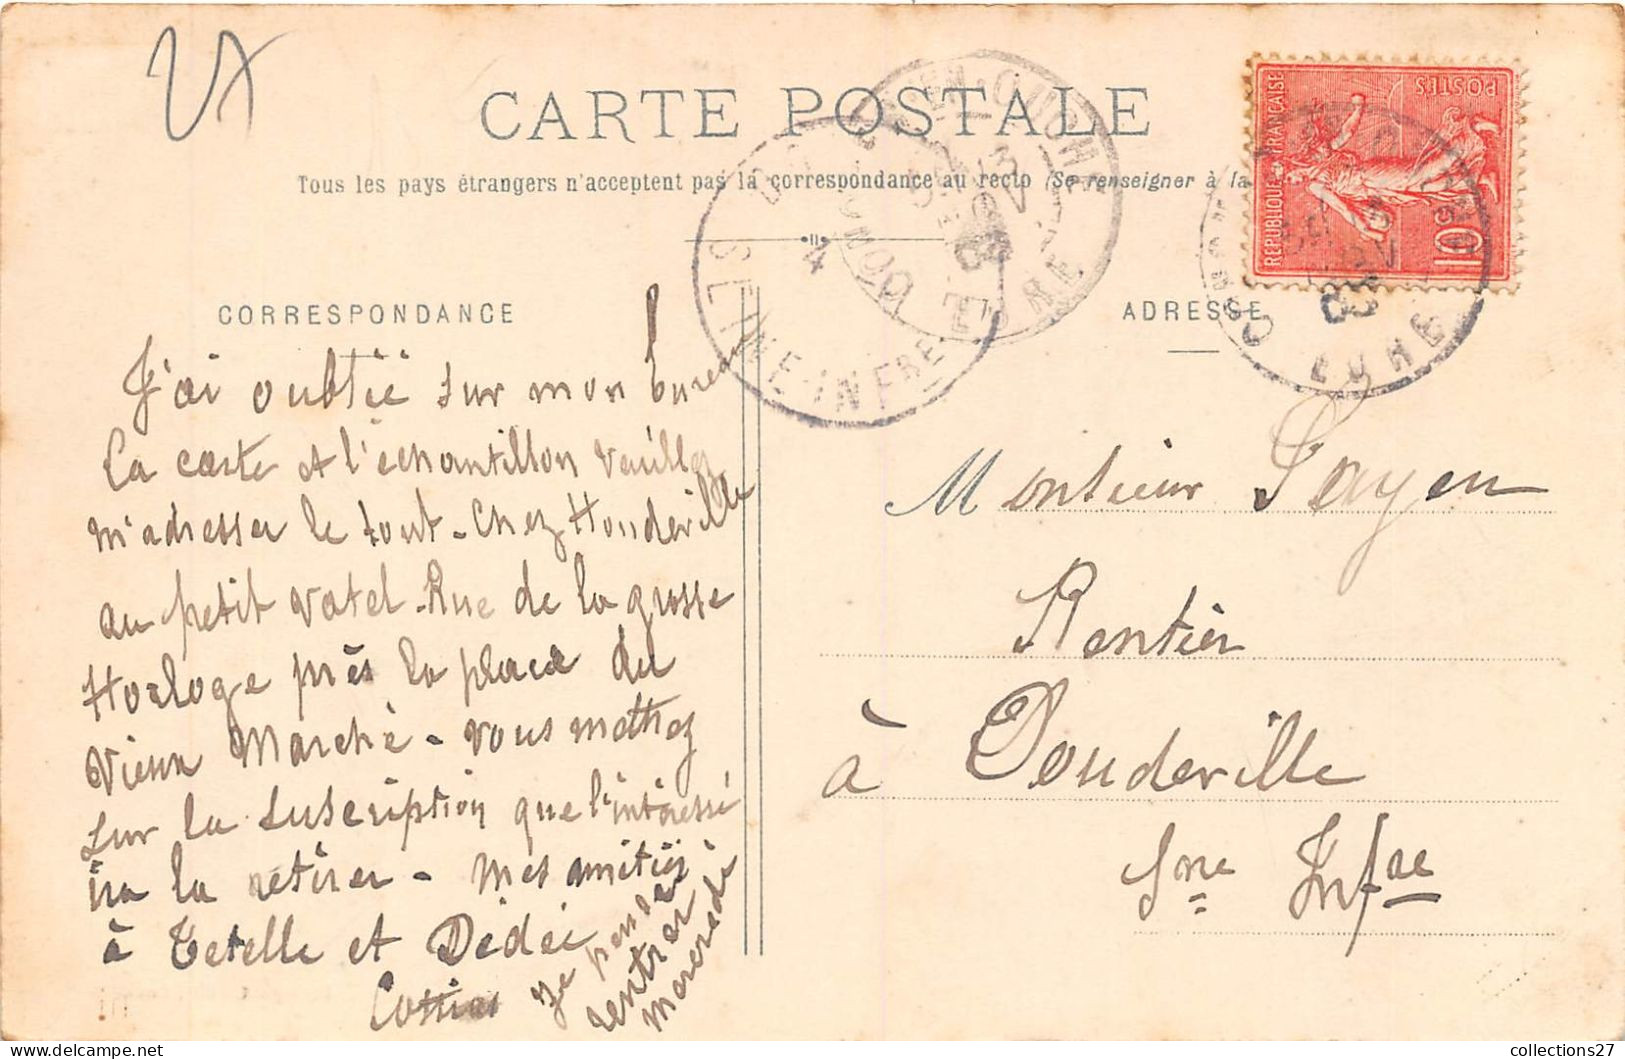 CARTE POSTALE
Tous les pays étrangers n'acceptent pas la correspondance au recto (Se renseigner à la
CORRESPONDANCE
J'ai oublié sur mon bureau
la carte et l'échantillon veuillez
m'adresser le tout - chez Houdeville
au petit Vatel - Rue de la grosse
Horloge près la place du
Vieux Marché - vous mettrez
sur la suscription que l'intéressé
ira la retirer - Mes amitiés
à Tetelle et Dédée
Je pense
rentrer
Mercredi
ADRESSE
Monsieur Payen
Rentier
à Doudeville
Sne Infre
REPUBLIQUE FRANÇAISE
POSTES
10c
SEINE-INFRE
4
EURE
EURE
collections27